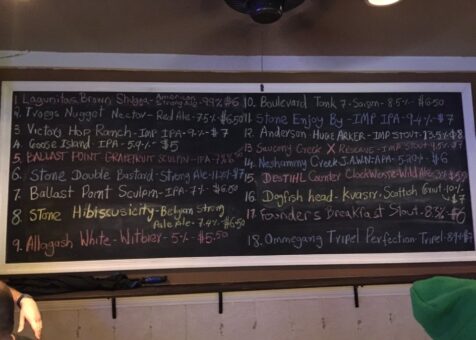 1. Lagunitas Brown Shugga - American Strong Ale - 9.9% $6
2. Troegs Nugget Nectar - Red Ale - 7.5% $6.50
3 Victory Hop Ranch - IMP IPA - 9% - $7
4 Goose Island - IPA - 5.9% - $5
5. BALLAST POINT GRAPEFRUIT SCULPIN - IPA -
6. Stone Double Bastard - Strong Ale - $7
7. Ballast Point Sculpin - IPA - 7% - $6.50
8 Stone Hibiscusicity - Belgian Strong
Pale Ale - 7.4% - $6.50
9. Allagash White - Witbier - 5% - $5.50
10. Boulevard Tank 7 - Saison - 8.5% - $6.50
11 Stone Enjoy By - IMP IPA - 9.4% - $7
12. Anderson HUGE ARKER - IMP STOUT - 13.5% $8
13 Saucony Creek X Reserve - IMP STOUT
14. Neshaminy Creek J.A.W.N - APA - $6
15. DESTIHL Counter ClockWeisse - Wild Ale
16 Dogfish head - Kvasir - Scottish Gruit - 10%
17. Founders Breakfast Stout - 8% $6
18. Ommegang Tripel Perfection - Tripel -